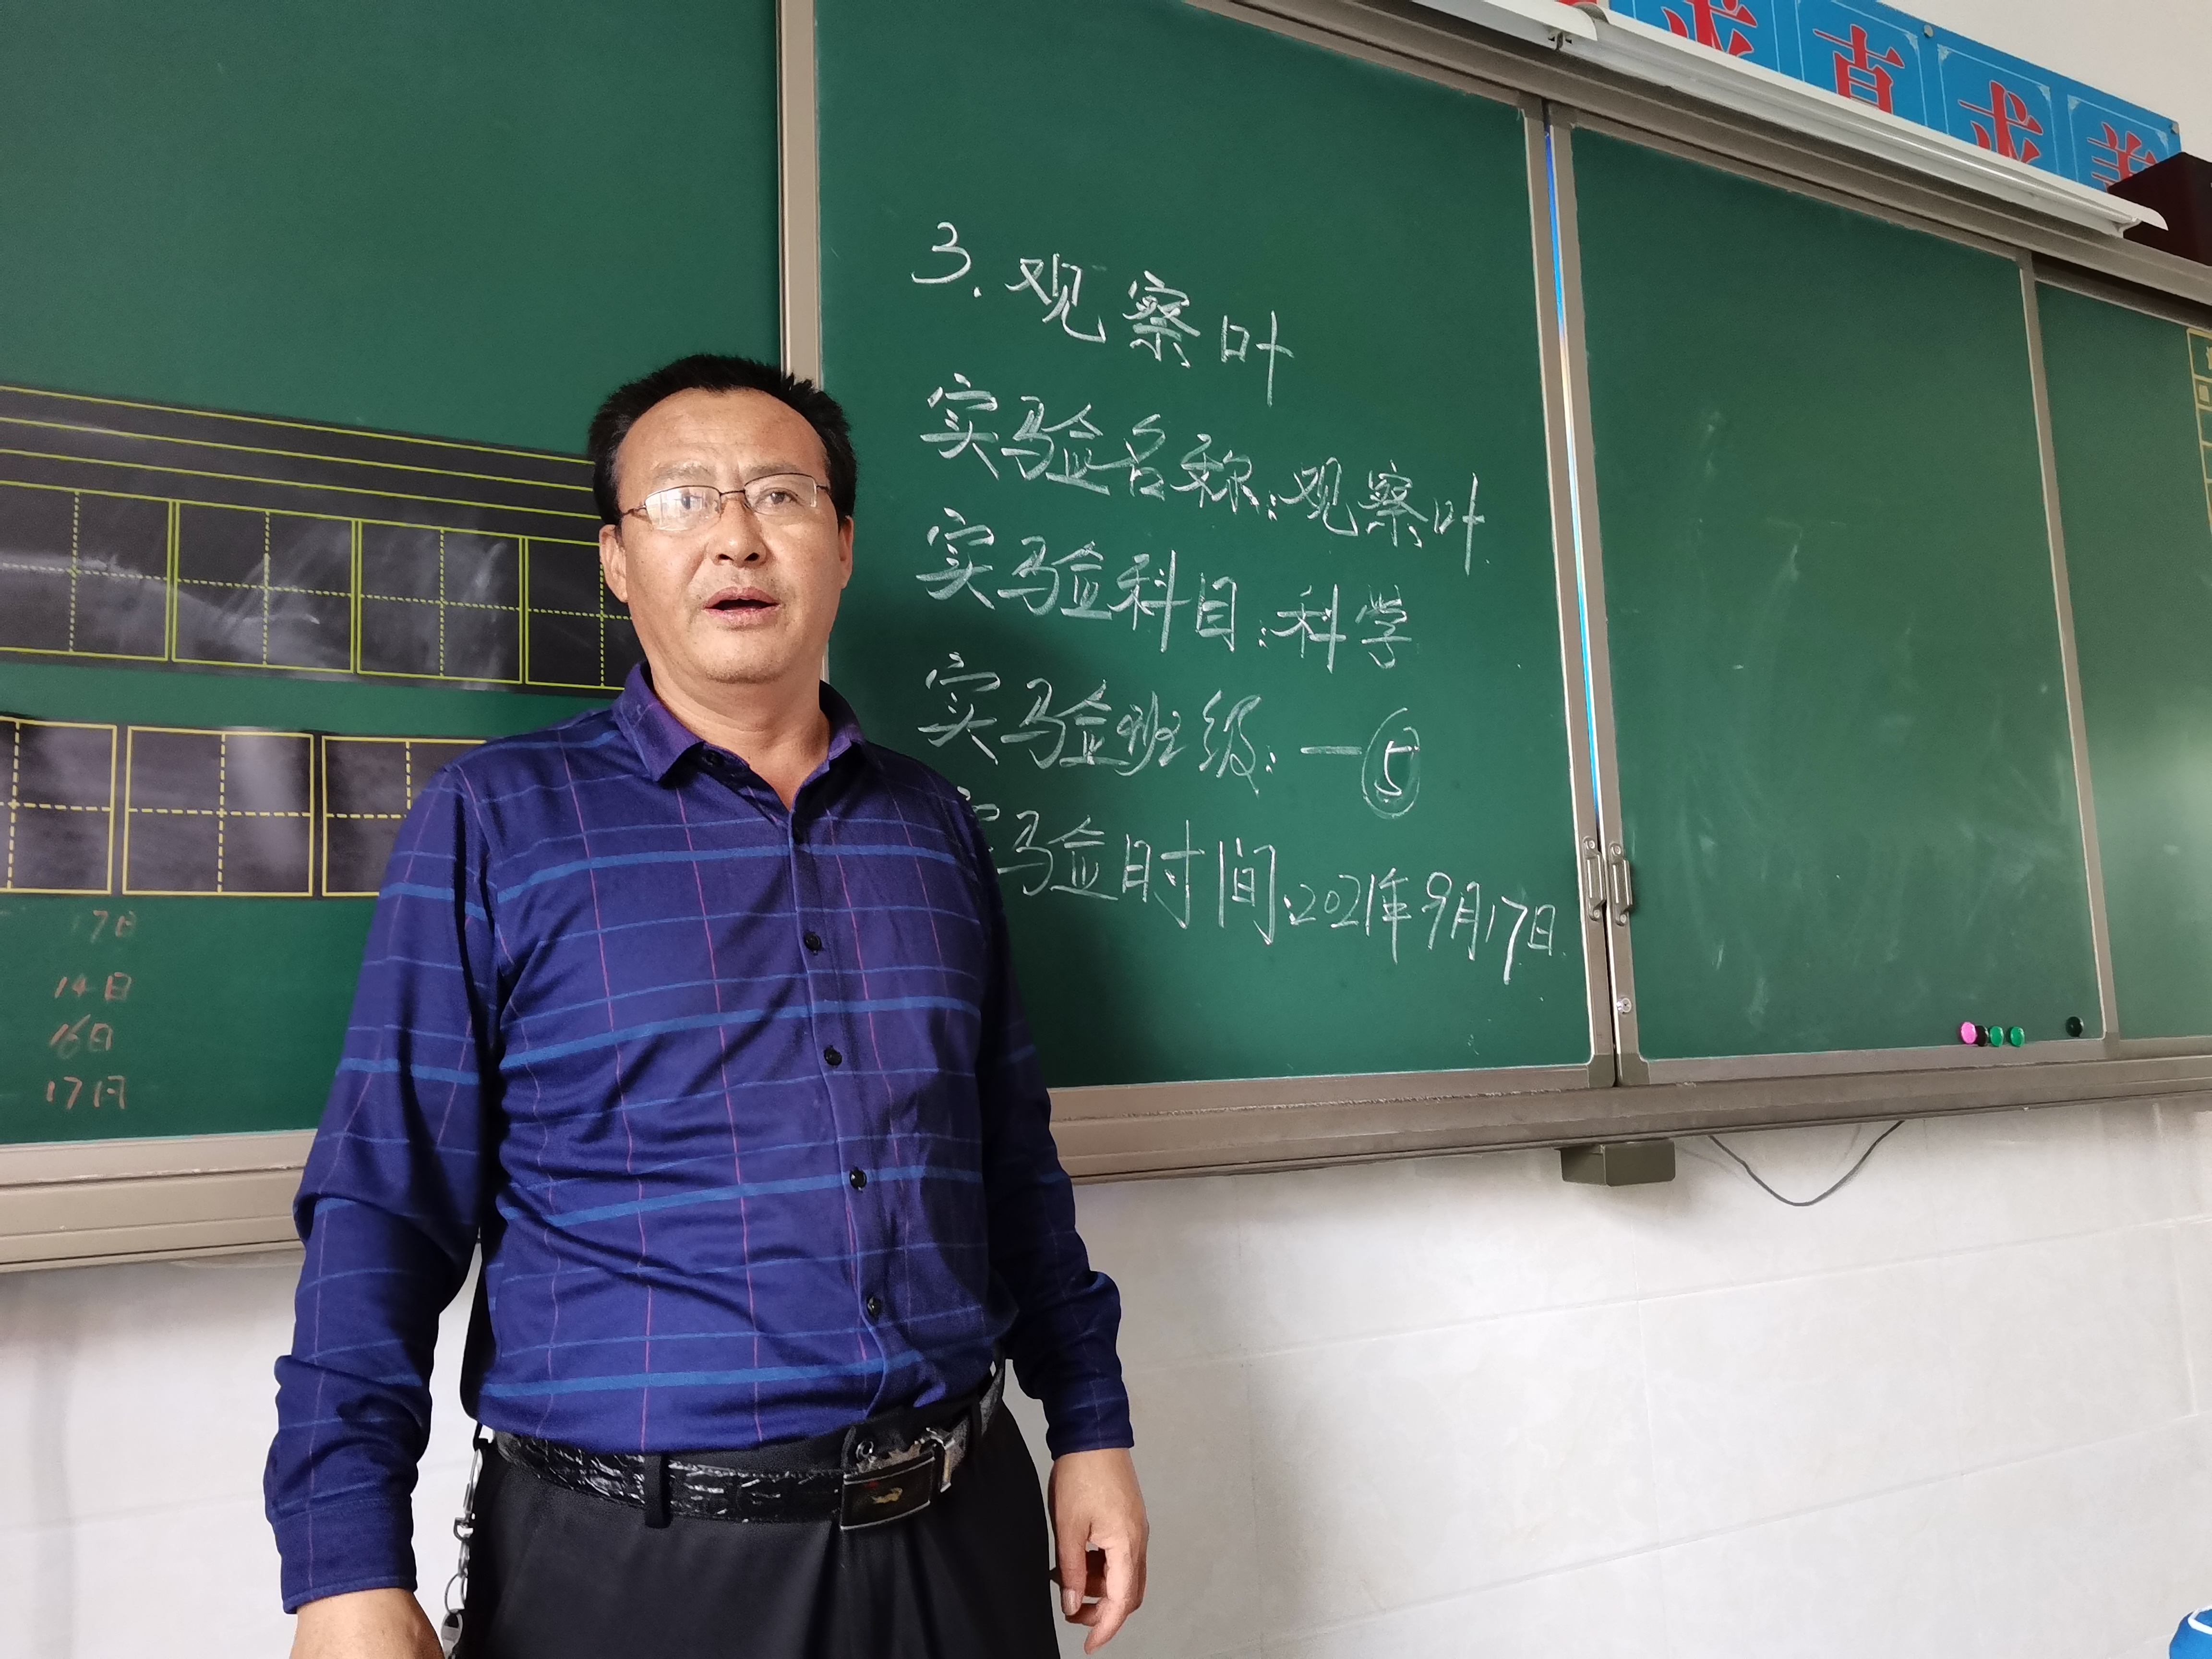 求真求善
3.观察叶
实验名称:观察叶
实验科目:科学
实验班级:一⑤
实验时间:2021年9月17日
17日
14日
16日
17日